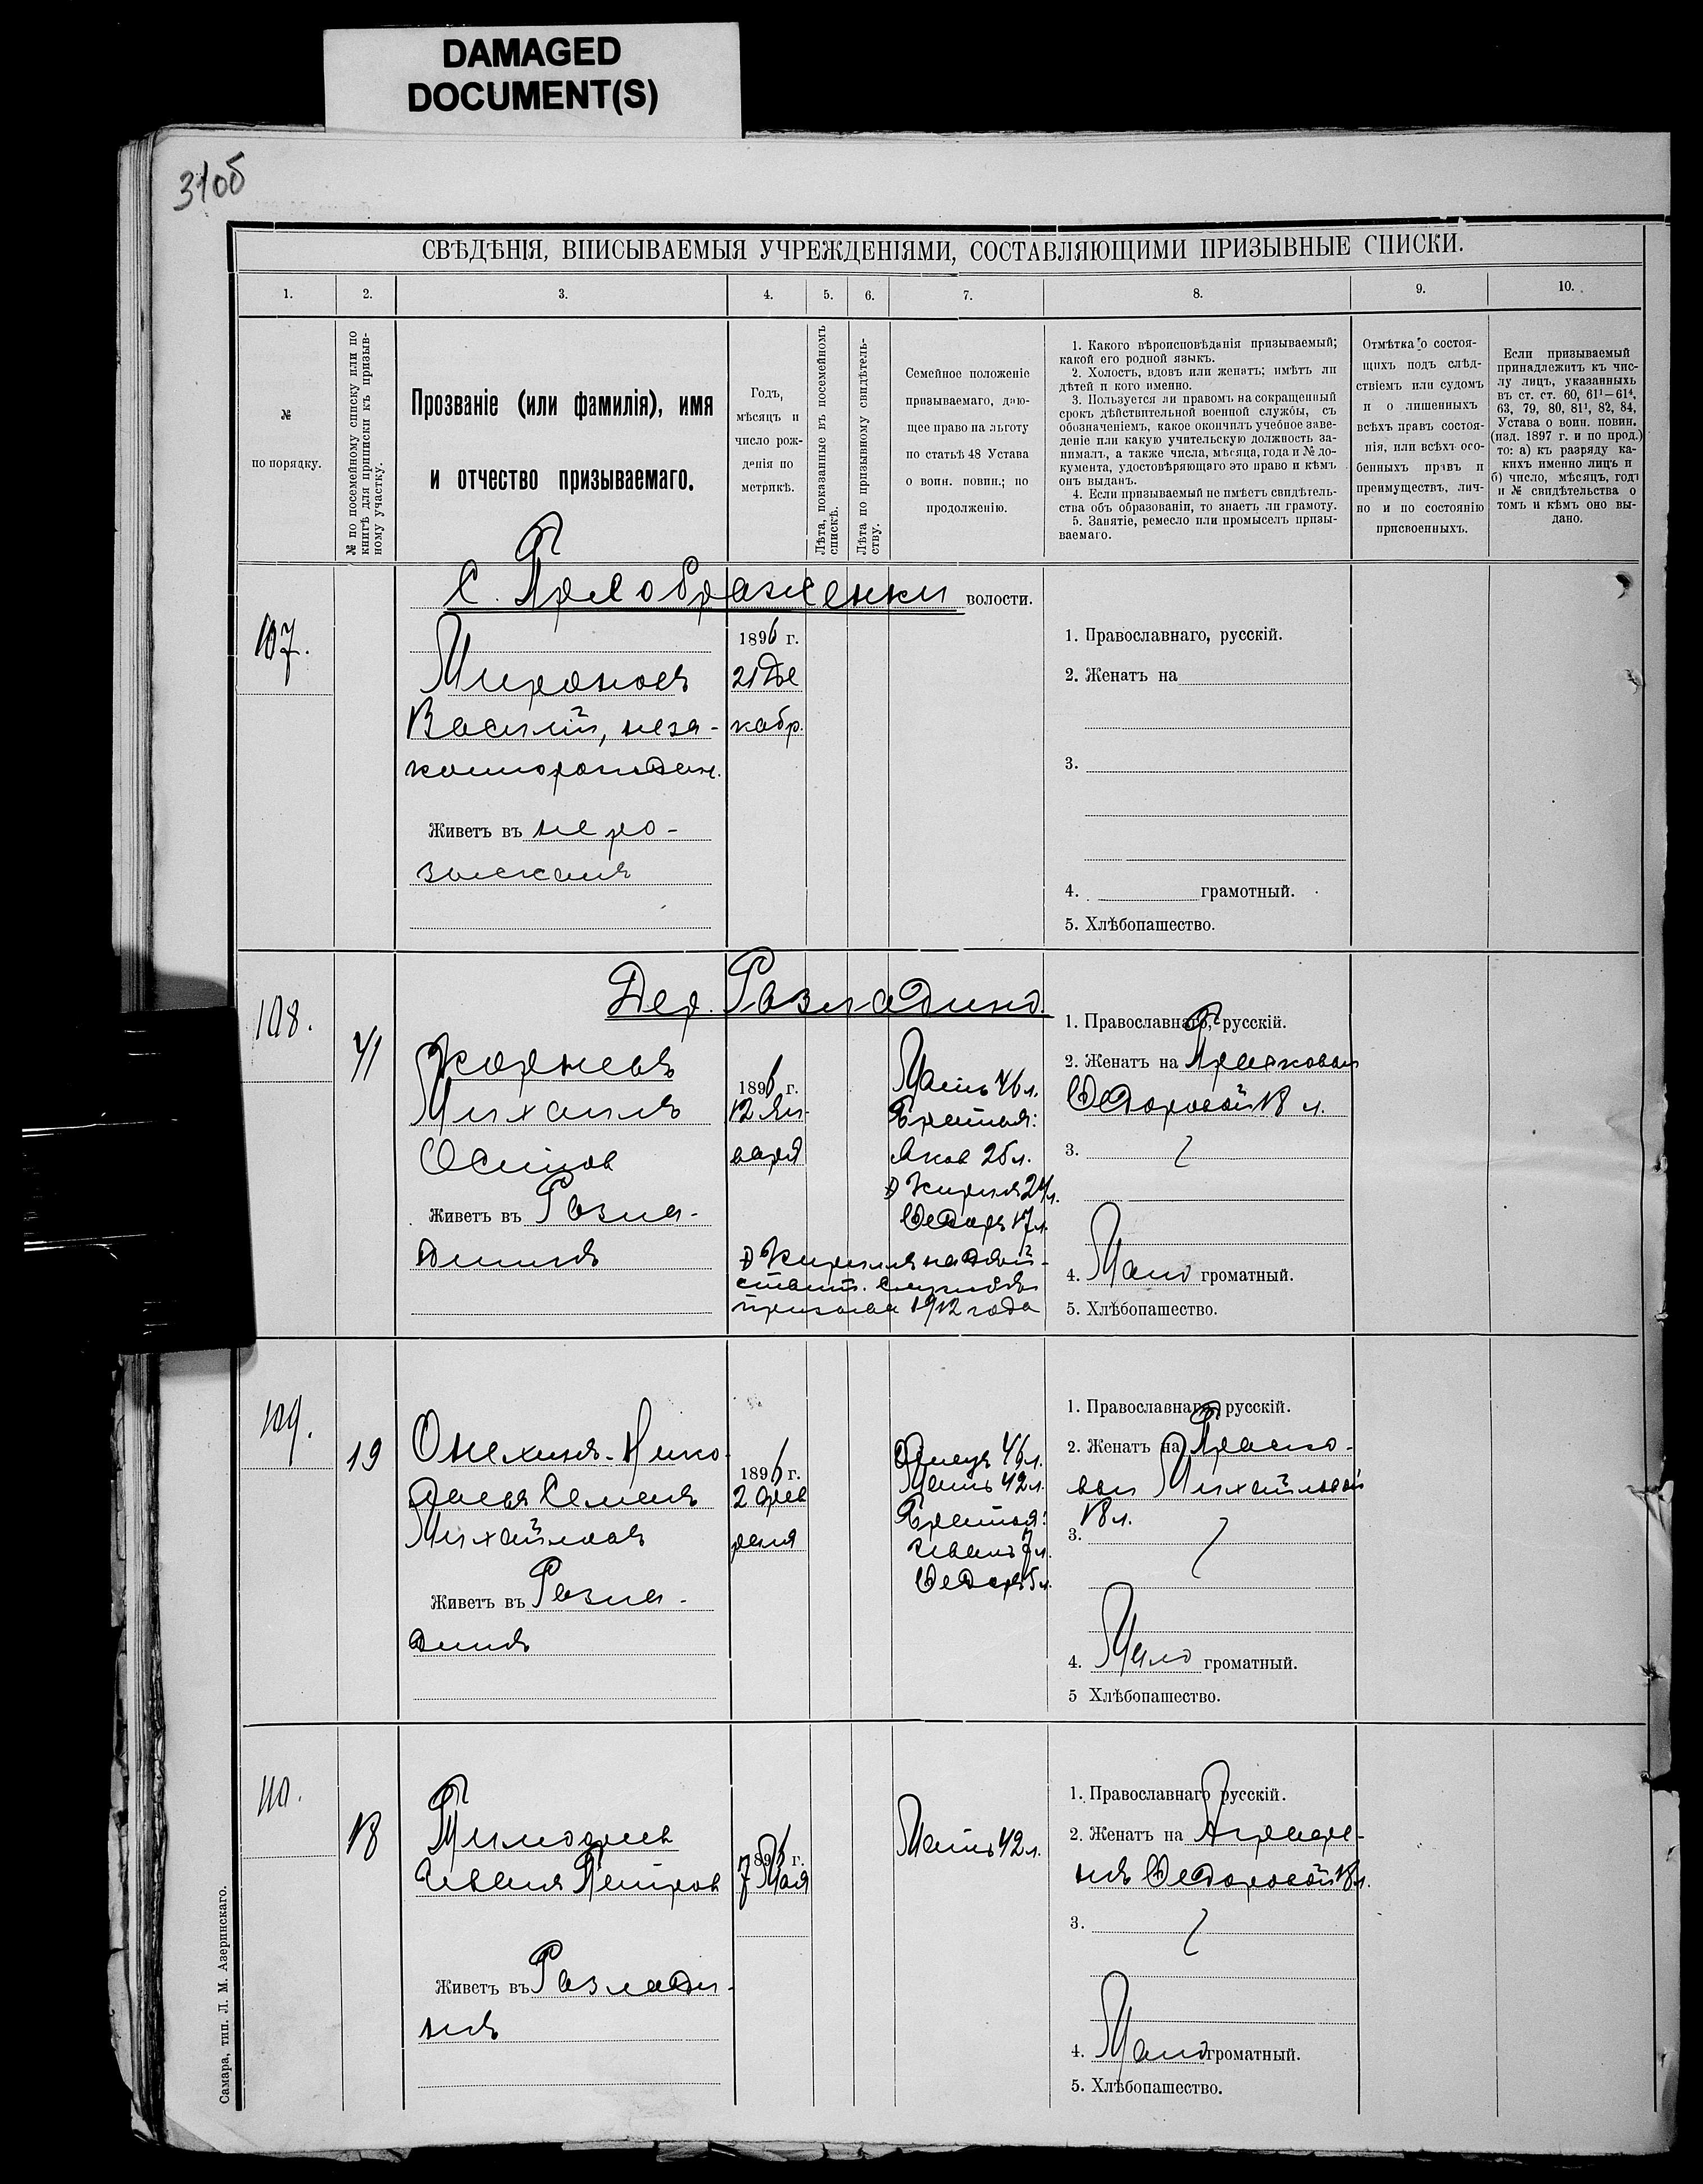 DAMAGED
DOCUMENT(S)
31об
СВѢДѢНІЯ, ВПИСЫВАЕМЫЯ УЧРЕЖДЕНІЯМИ, СОСТАВЛЯЮЩИМИ ПРИЗЫВНЫЕ СПИСКИ.
1.
2.
3.
4.
5.
6.
7.
8.
9.
10.
№
по порядку.
№ по посемейному списку или по
книгѣ для приписки къ призыв-
ному участку.
Прозваніе (или фамилія), имя
и отчество призываемаго.
Годъ,
мѣсяцъ и
число рож-
денія по
метрикѣ.
Лѣта, показанные въ посемейномъ
спискѣ.
Лѣта по призывному свидѣтель-
ству.
Семейное положеніе
призываемаго, даю-
щее право на льготу
по статьѣ 48 Устава
о воин. повин.; по
продолженію.
1. Какого вѣроисповѣданія призываемый;
какой его родной языкъ.
2. Холостъ, вдовъ или женатъ; имѣтъ ли
дѣтей и кого именно.
3. Пользуется ли правомъ на сокращенный
срокъ дѣйствительной военной службы, съ
обозначеніемъ, какое окончилъ учебное заве-
деніе или какую учительскую должность за-
нималъ, а также числа, мѣсяца, года и № до-
кумента, удостовѣряющаго это право и кѣмъ
онъ выданъ.
4. Если призываемый не имѣетъ свидѣтель-
ства объ образованіи, то знаетъ ли грамоту.
5. Занятіе, ремесло или промыселъ призы-
ваемаго.
Отмѣтка о состоя-
щихъ подъ слѣд-
ствіемъ или судомъ
и о лишенныхъ
всѣхъ правъ состоя-
нія, или всѣхъ осо-
бенныхъ правъ и
преимуществъ, лич-
но и по состоянію
присвоенныхъ.
Если призываемый
принадлежитъ къ чис-
лу лицъ, указанныхъ
въ ст. ст. 60, 61¹—61⁴,
63, 79, 80, 81¹, 82, 84,
Устава о воин. повин.
(изд. 1897 г. и по прод.)
то: а) къ разряду ка-
кихъ именно лицъ и
б) число, мѣсяцъ, годъ
и № свидѣтельства о
томъ и кѣмъ оно вы-
дано.
С. Преображенки волости.
107.
Миронов
Василій, неза-
коннорожден.
Живетъ въ не ро-
зысканъ
1896 г.
21 Де
кабр.
1. Православнаго, русскій.
2. Женатъ на
3.
4. грамотный.
5. Хлѣбопашество.
Дер. Разладино
108.
41
Корневъ
Михаилъ
Осипов
Живетъ въ Разла-
динѣ
1896 г.
12 Ян-
варя
Мать 46 л.
Братья:
Яков 25 л.
Кирилъ 24 л.
Ѳедоръ 17 л.
Кириллъ на дѣй-
ствит. службѣ
призыва 1912 года
1. Православнаго, русскій.
2. Женатъ на Прасковьи
Ѳедоровой 18 л.
3.
4. Мало громатный.
5. Хлѣбопашество.
109.
19
Онехинъ-Нико-
лаевъ Семенъ
Михайловъ
Живетъ въ Разла-
динѣ
1896 г.
2 Фев
раля
Отецъ 46 л.
Мать 42 л.
Братья:
Иванъ 7 л.
Ѳедоръ 5 л.
1. Православнаго русскій.
2. Женатъ на Праско-
вьи Михайловой
18 л.
3.
4. Мало громатный.
5 Хлѣбопашество.
110.
18
Тимофеев
Иванъ Петров
Живетъ въ Разлади-
нѣ
1896 г.
7 Мая
Мать 42 л.
1. Православнаго русскій.
2. Женатъ на Аграфе-
нѣ Ѳедоровой 18 л.
3.
4. Мало громатный.
5. Хлѣбопашество.
Самара, тип. Л. М. Азеринскаго.